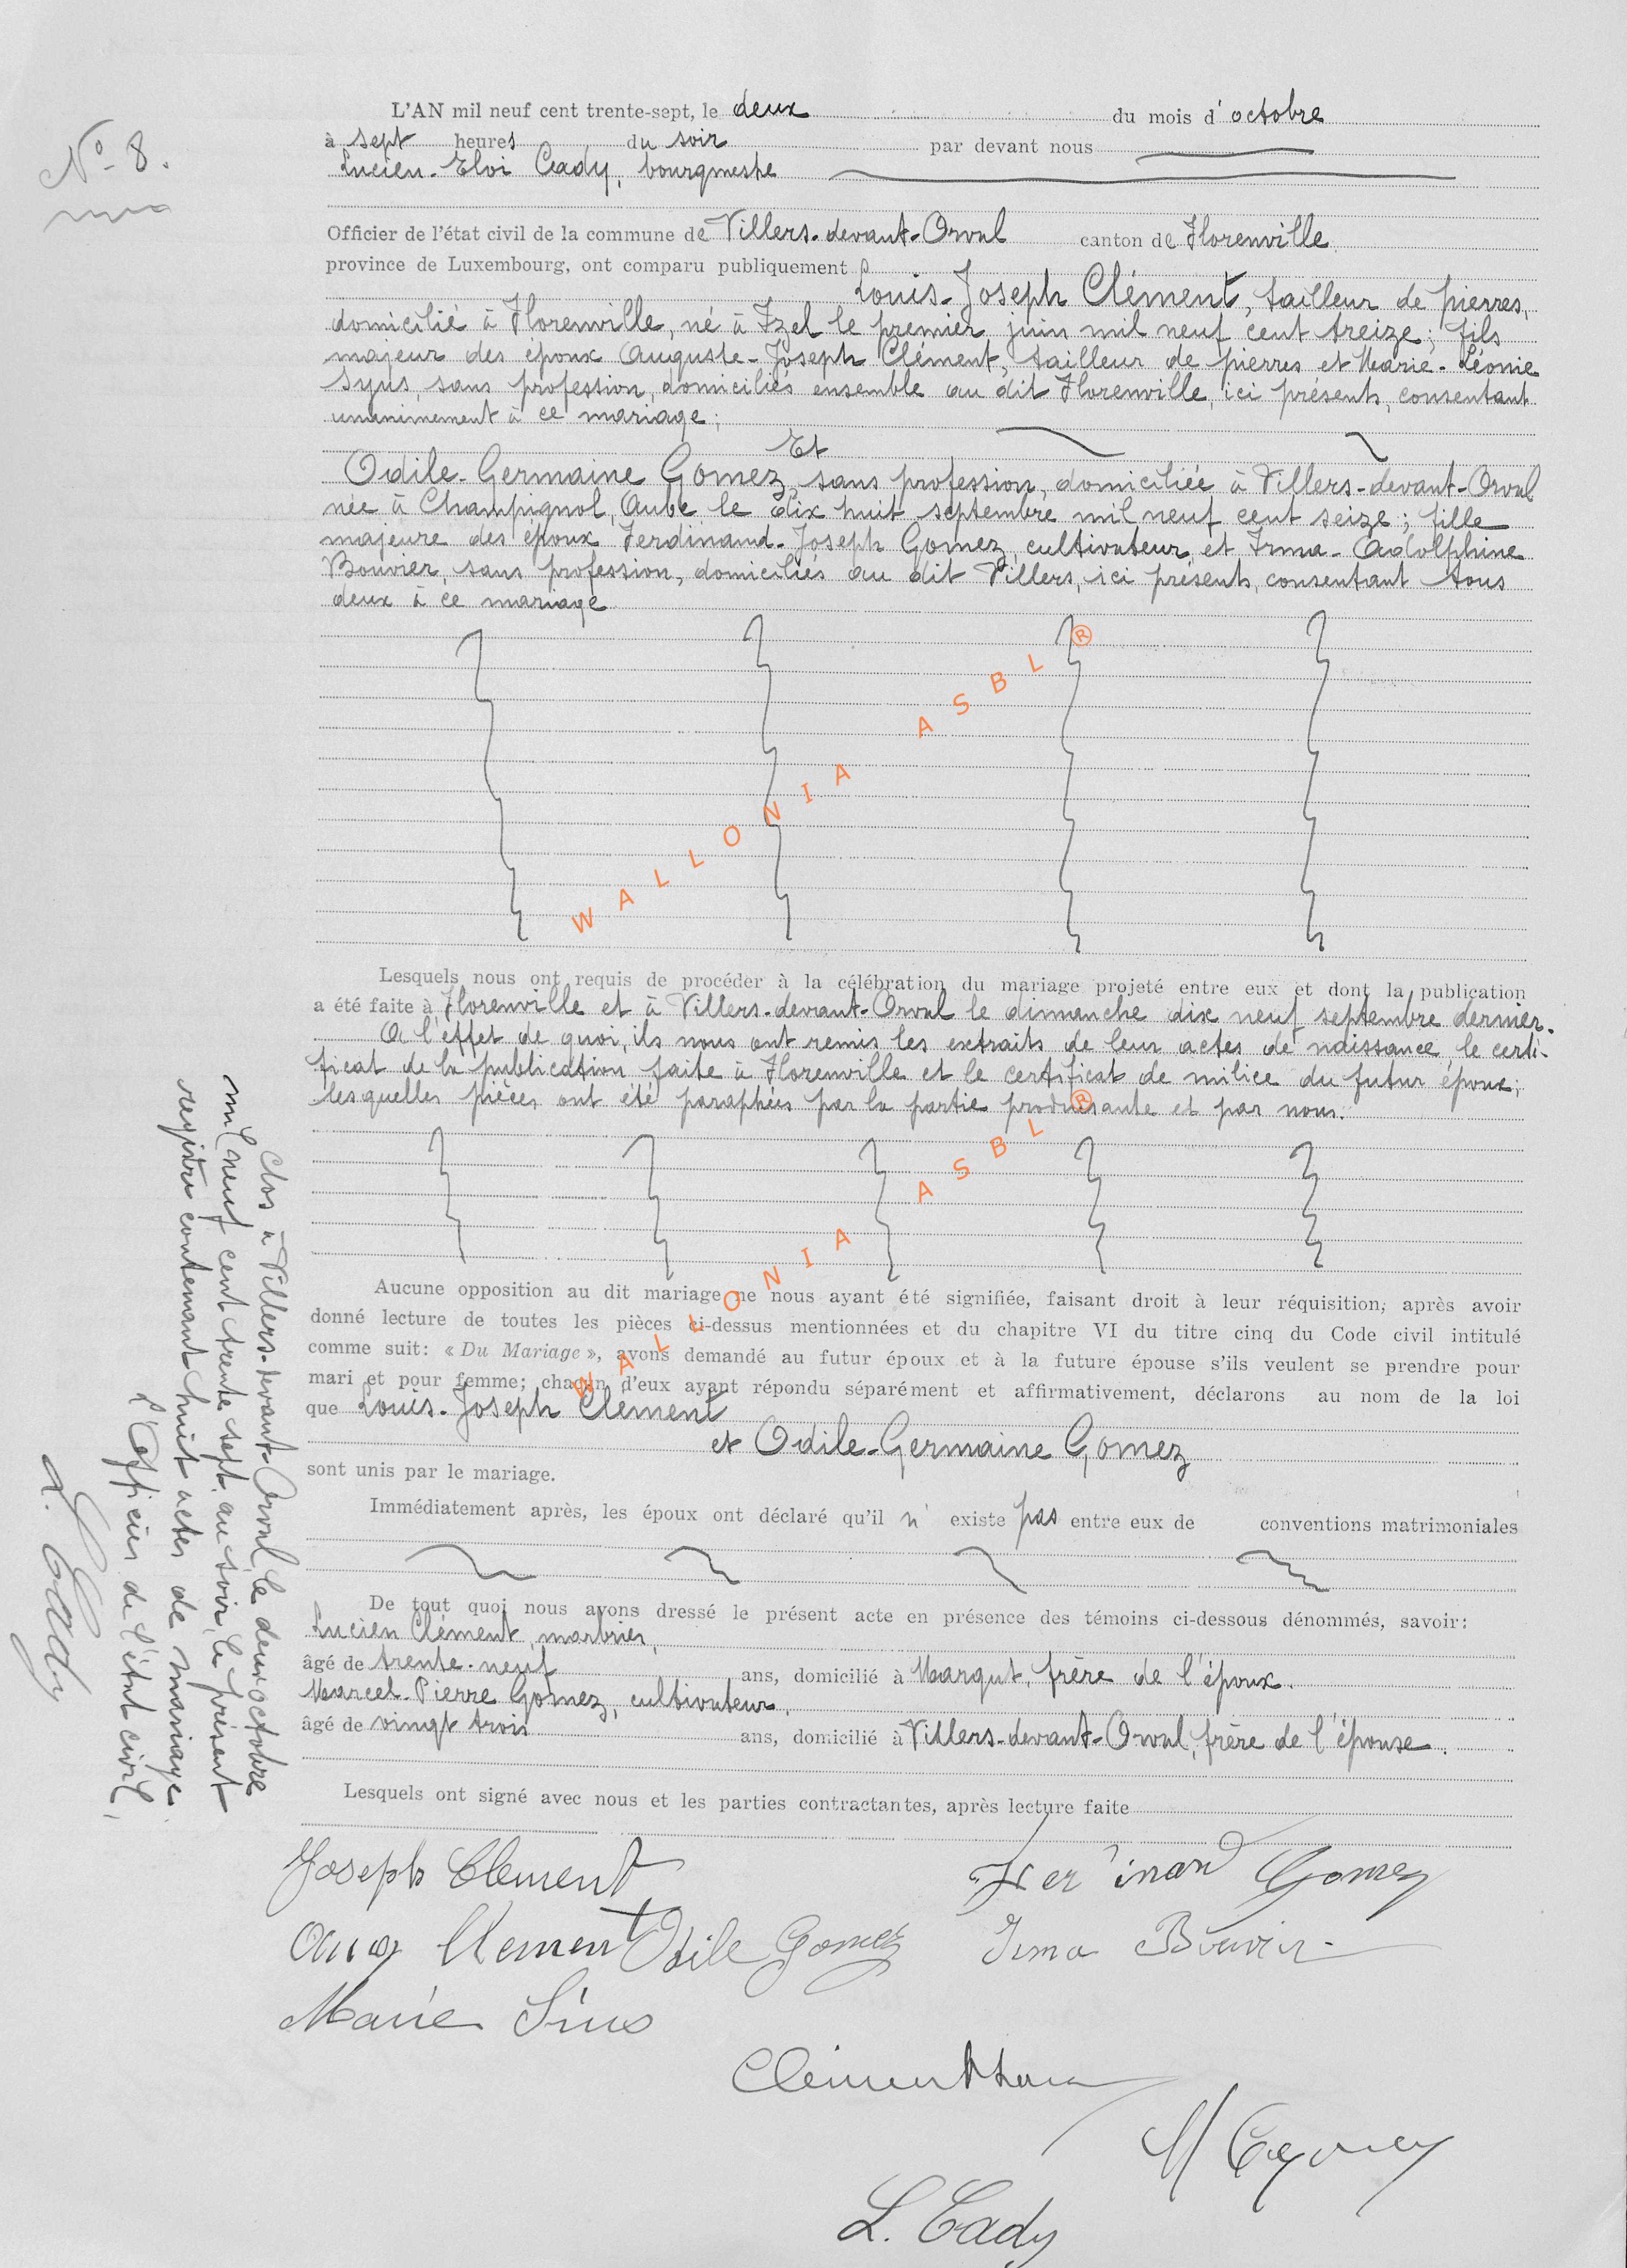 N° 8.
L'AN mil neuf cent trente-sept, le deux du mois d'octobre
à sept heures du soir par devant nous
Lucien-Eloi Cady, bourgmestre
Officier de l'état civil de la commune de Villers-devant-Orval canton de Florenville
province de Luxembourg, ont comparu publiquement
Louis-Joseph Clément, tailleur de pierres,
domicilié à Florenville, né à Izel le premier juin mil neuf cent treize; fils
majeur des époux Auguste-Joseph Clément, tailleur de pierres et Marie-Léonie
Syus, sans profession, domiciliés ensemble au dit Florenville, ici présents, consentant
unanimement à ce mariage;
Et
Odile-Germaine Gomez, sans profession, domiciliée à Villers-devant-Orval
née à Champignol, Aube le dix huit septembre mil neuf cent seize; fille
majeure des époux Ferdinand-Joseph Gomez, cultivateur, et Irma-Adolphine
Bouvier, sans profession, domiciliés au dit Villers, ici présents, consentant tous
deux à ce mariage
WALLONIA ASBL ®
Lesquels nous ont requis de procéder à la célébration du mariage projeté entre eux et dont la publication
a été faite à Florenville et à Villers-devant-Orval le dimanche dix neuf septembre dernier.
A l'effet de quoi, ils nous ont remis les extraits de leur actes de naissance, le certi-
ficat de la publication faite à Florenville et le certificat de milice du futur époux;
lesquelles pièces ont été paraphées par la partie produisante et par nous.
WALLONIA ASBL ®
Aucune opposition au dit mariage ne nous ayant été signifiée, faisant droit à leur réquisition, après avoir
donné lecture de toutes les pièces ci-dessus mentionnées et du chapitre VI du titre cinq du Code civil intitulé
comme suit: « Du Mariage », avons demandé au futur époux et à la future épouse s'ils veulent se prendre pour
mari et pour femme; chacun d'eux ayant répondu séparément et affirmativement, déclarons au nom de la loi
que Louis-Joseph Clément
et Odile-Germaine Gomez
sont unis par le mariage.
Immédiatement après, les époux ont déclaré qu'il n' existe pas entre eux de conventions matrimoniales
De tout quoi nous avons dressé le présent acte en présence des témoins ci-dessous dénommés, savoir:
Lucien Clément, marbrier,
âgé de trente-neuf ans, domicilié à Margut, frère de l'époux.
Marcel-Pierre Gomez, cultivateur,
âgé de vingt trois ans, domicilié à Villers-devant-Orval, frère de l'épouse.
Lesquels ont signé avec nous et les parties contractantes, après lecture faite
Joseph Clement
Fer inand Gomez
Aug Clement Odile Gomez Irma Bouvier
Marie Sius
Clement
M Gomez
L. Cady
Clos à Villers-devant-Orval, le deux octobre
mil neuf cent trente sept, au soir, le présent
registre contenant huit actes de mariage
L'Officier de l'état civil,
L. Cady